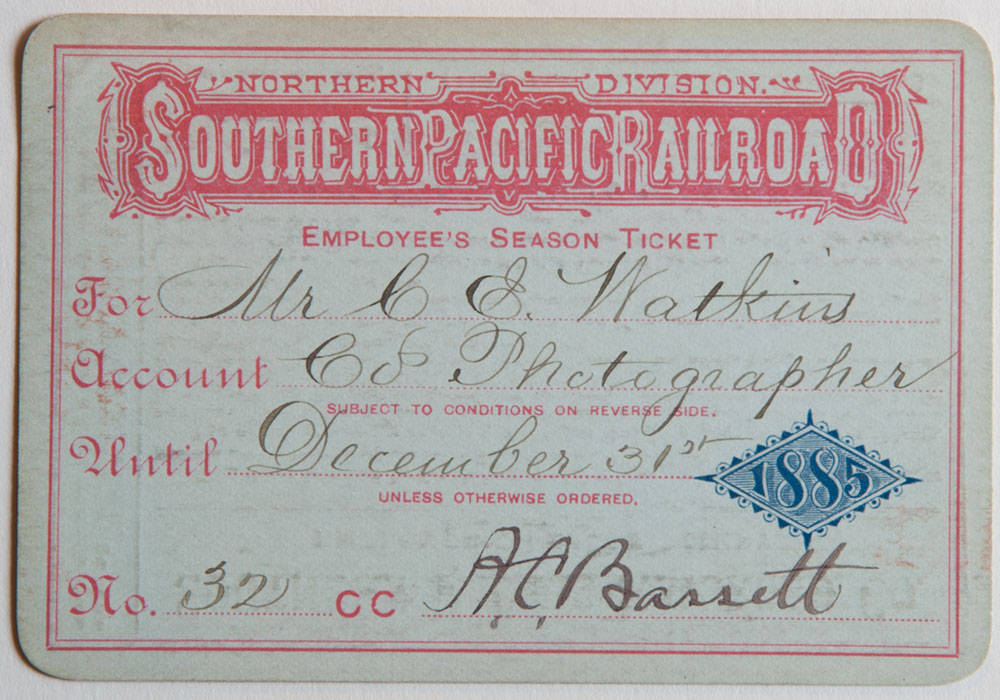 NORTHERN DIVISION.
SOUTHERN PACIFIC RAILROAD
EMPLOYEE'S SEASON TICKET
For Mr C E. Watkins
Account Co Photographer
SUBJECT TO CONDITIONS ON REVERSE SIDE.
Until December 31st 1885
UNLESS OTHERWISE ORDERED.
No. 32 CC A.C. Bassett